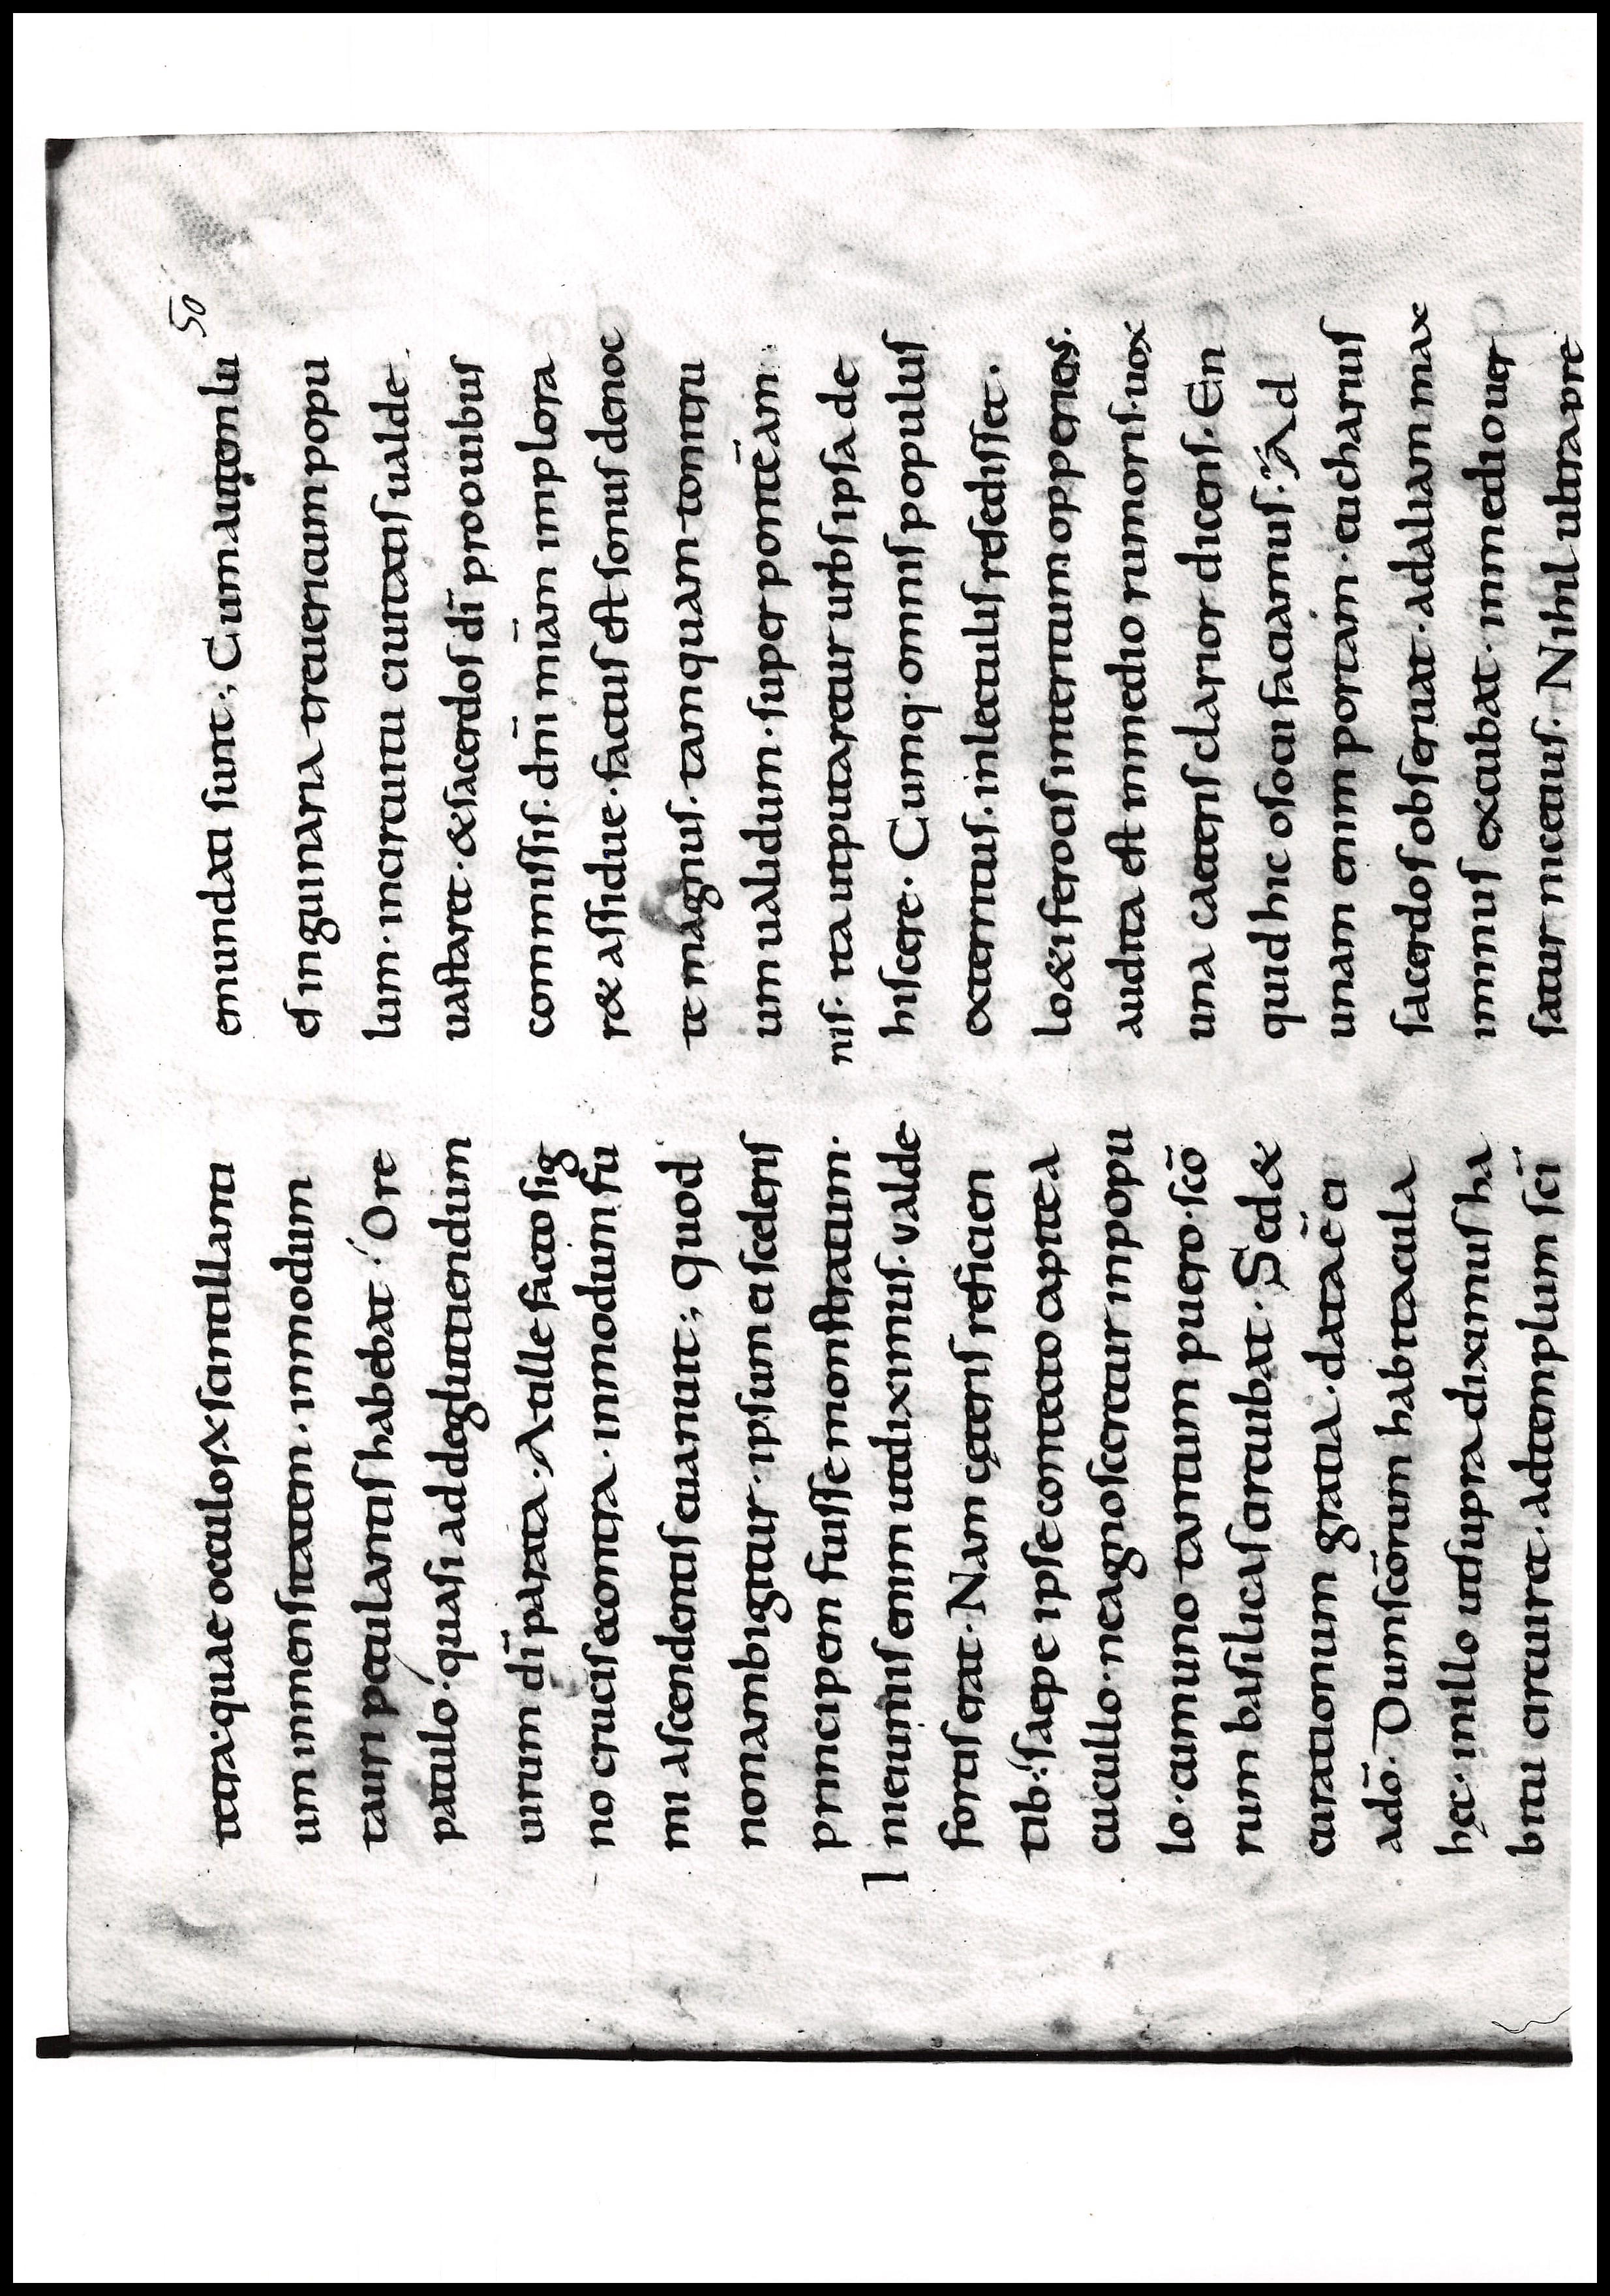 50
tetra·quae occulos & scintillanti
um inmensitatem · inmodum
tauri petulantis habebat · Ore
patulo · quasi ad deglutiendum
uirum dī parata · At ille facto sig
no crucis econtra · inmodum fu
mi ascendentis euanuit ·; quod
non ambigitur · ipsum ei sceleris
principem fuisse monstratum ·
In ieiuniis enim ut diximus · valde
fortis erat · Nam cęteris reficien
tib: saepe ipse contecto capite a
cucullo · ne agnosceretur in popu
lo · cum uno tantum puero · scō
rum basilicas circuibat · Sed &
curationum gratia · data ē ei
a dō · Dum scōrum habitacula
hęc · in illo ut supra diximus ha
bitu circuiret · ad templum scī
emundati sunt ·; Cum autem lu
es inguinaria treuericum popu
lum · in circuitu ciuitatis ualde
uastaret · & sacerdos dī pro ouibus
commissis · dnī miām implora
r& assidue · factus est sonus de noc
te magnus · tamquam tonitru
um ualidum · super pontē am
nis · ita ut putaretur urbs ipsa de
hiscere · Cumq· omnis populus
exterritus · in lectulis resedisset ·
lo&iferocis interitum opperiens ·
audita est in medio rumoris · uox
una caeteris clarior dicens · En
quid hic o socii faciamus · Ad
unam enim portam · eucharius
sacerdos obseruat · ad aliam max
iminus excubat · in medio uer
satur nicetius · Nihil ultra pre